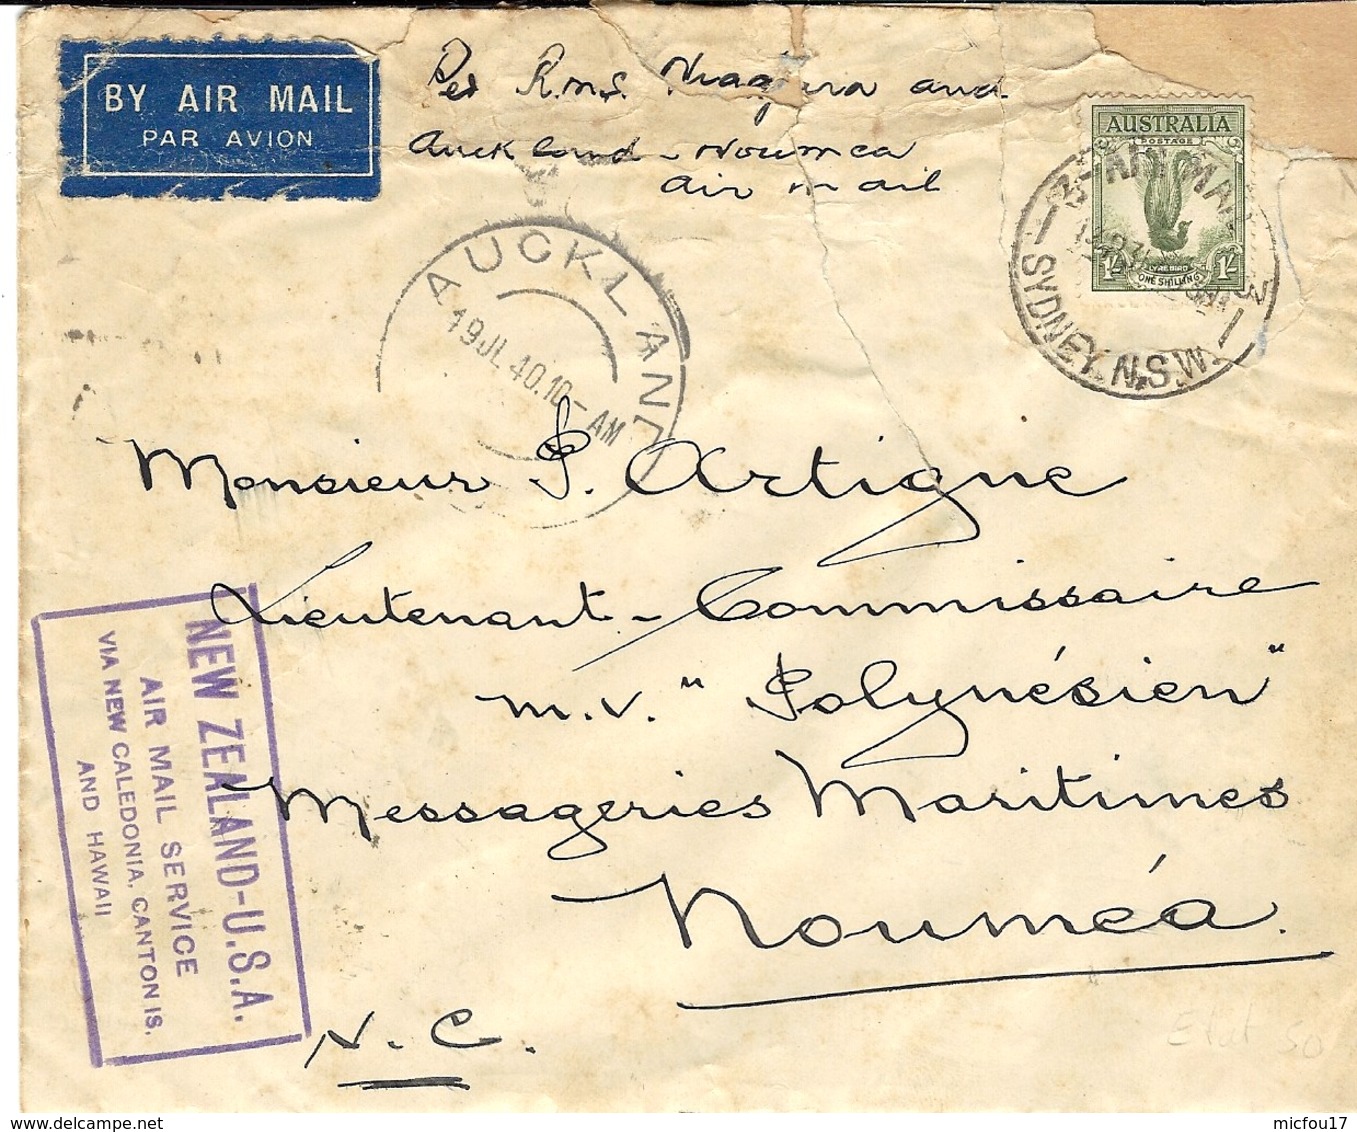 BY AIR MAIL
PAR AVION
Per R.M.S. Niagara and
Auckland - Noumea
air mail
AUSTRALIA
POSTAGE
1/- LYREBIRD 1/-
ONE SHILLING
SYDNEY. N.S.W.
AUCKLAND
19 JL 40.10 - AM
Monsieur P. Artigne
Lieutenant-Commissaire
m.v. "Polynésien"
Messageries Maritimes
Nouméa.
N.C.
NEW ZEALAND-U.S.A.
AIR MAIL SERVICE
VIA NEW CALEDONIA, CANTON IS.
AND HAWAII
Etat 50
micfou17